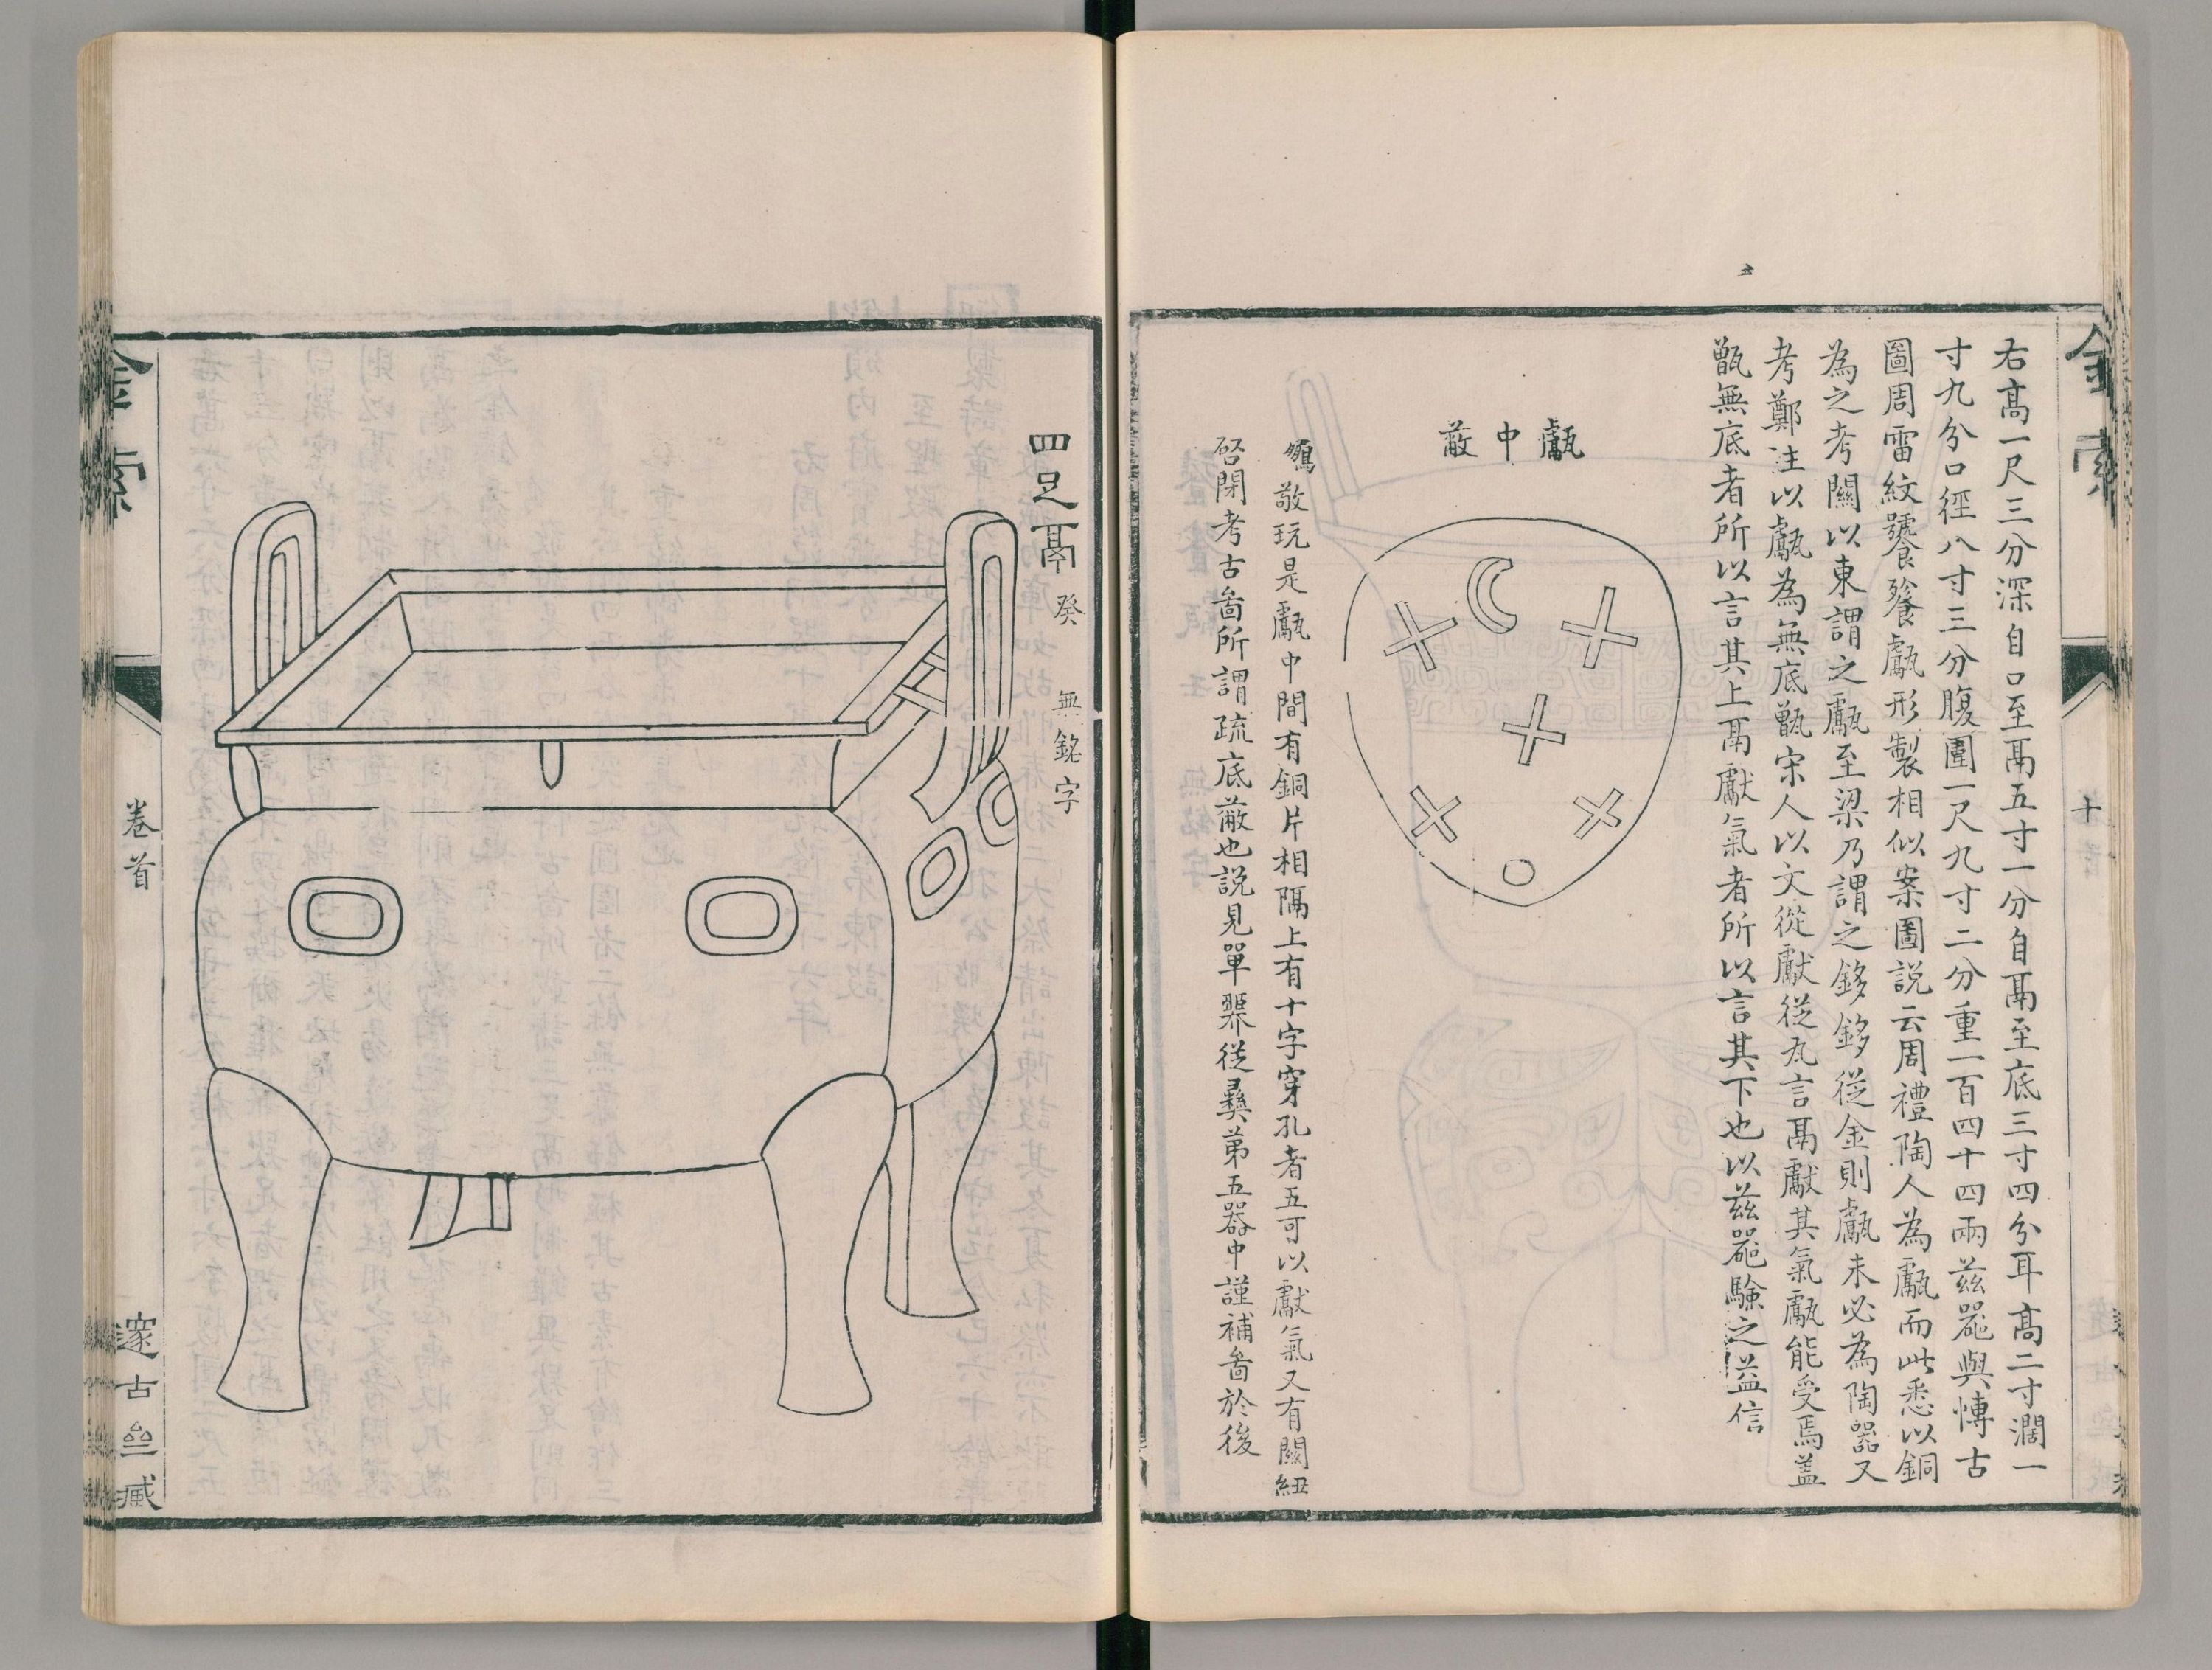 金索
十
右高一尺三分深自口至鬲五寸一分自鬲至底三寸四分耳高二寸濶一
寸九分口徑八寸三分腹圍一尺九寸二分重一百四十四兩茲器與博古
圖周雷紋饕餮甗形製相似案圖説云周禮陶人為甗而此悉以銅
為之考關以東謂之甗至梁乃謂之鉹鉹從金則甗未必為陶器又
考鄭注以甗為無底甑宋人以文從獻從瓦言鬲獻其氣甗能受焉盖
甑無底者所以言其上鬲獻氣者所以言其下也以茲器驗之益信
甗中蔽
敬玩是甗中間有銅片相隔上有十字穿孔者五可以獻氣又有關紐
啓閉考古啚所謂疏底蔽也説見單 從彝弟五器中謹補啚於後
四足鬲 癸 無銘字
金索
卷首
邃古 藏